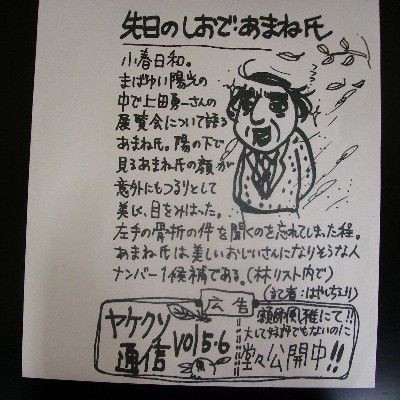 先日のしおで・あまね氏
小春日和。
まばゆい陽光の
中で上田勇一さんの
展覧会について語る
あまね氏。陽の下で
見るあまね氏の顔が
意外にもつるりとして
美しく、目をみはった。
左手の骨折の件を聞くのを忘れてしまった程。
あまね氏は美しいおじいさんになりそうな人
ナンバー1候補である。(林リスト内で)
(記者:はやしちえり)
広告
ヤケクソ
通信
Vol 5・6
にて!!
大して好評でもないのに
堂々公開中!!